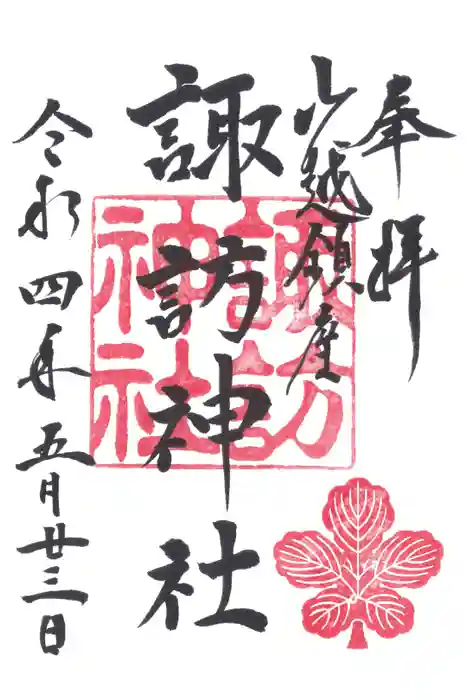 奉拝
山越鎮座
諏訪神社
令和四年五月廿三日
諏訪
神社